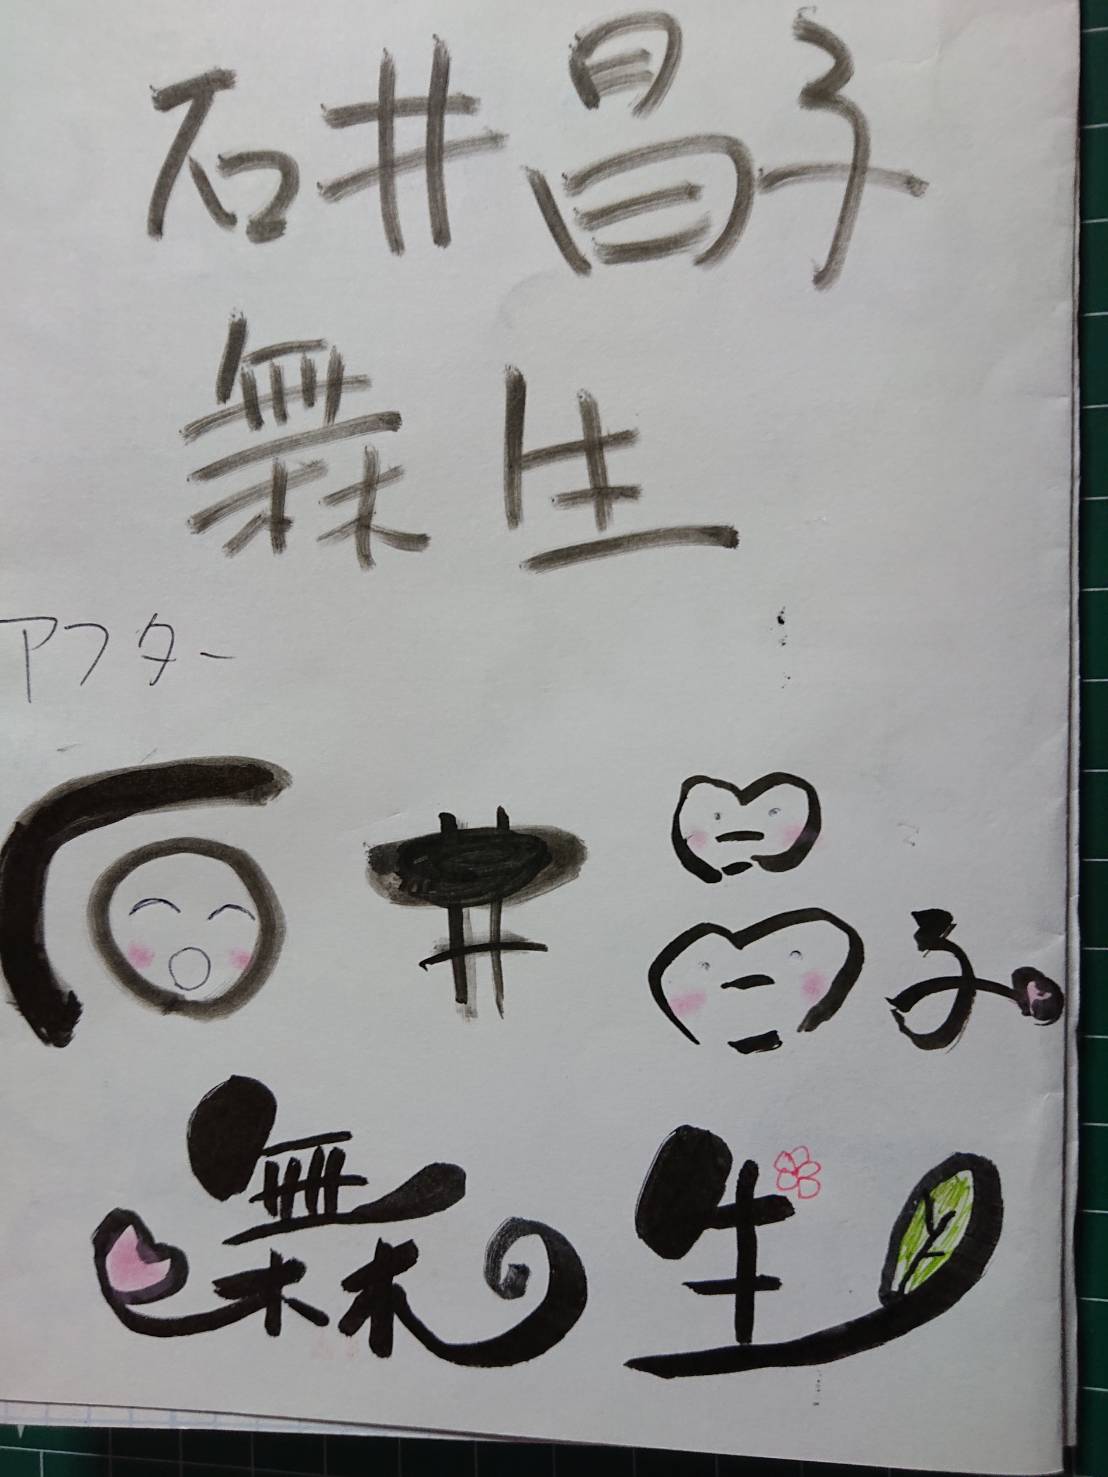 石井昌子
橆生
アフター
石井昌子
橆生